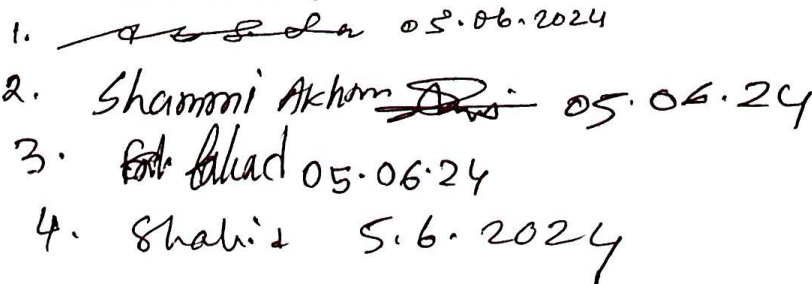 1. 05.06.2024
2. Shammi Akhom 05.06.24
3. Fahad 05.06.24
4. Shahid 5.6.2024